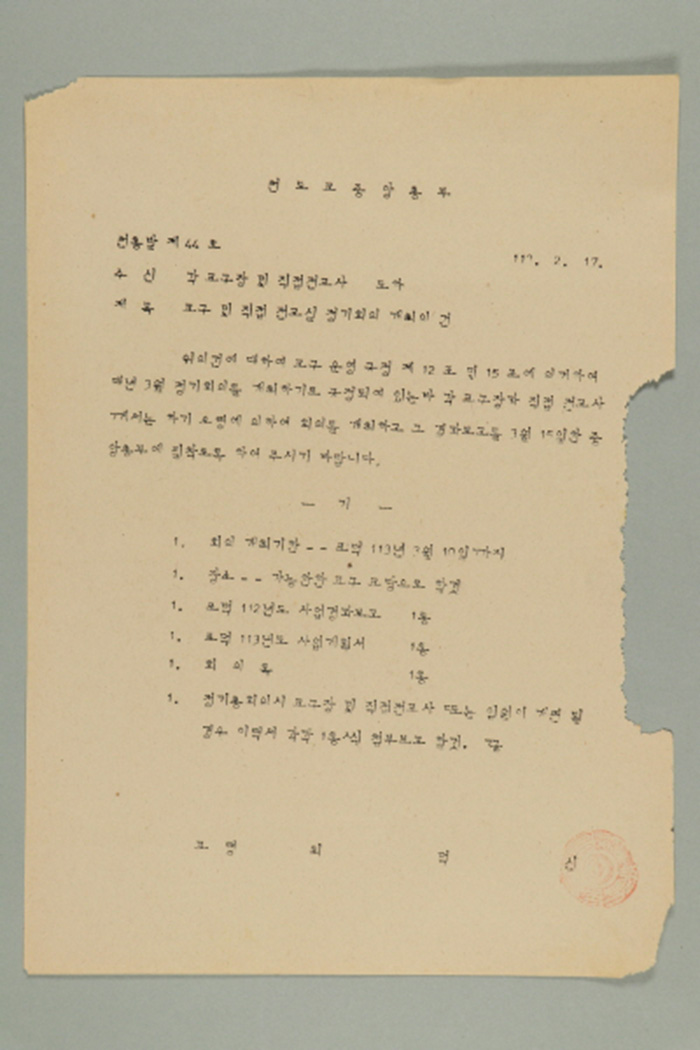 천도교중앙총부
천총발 제 44 호
113. 2. 17.
수 신 각 교구장 및 직접전교사 도하
제 목 교구 및 직접 전교실 정기회의 개최의 건
위의건에 대하여 교구 운영 규정 제 12 조 및 15 조에 의거하여
매년 3월 정기회의를 개최하기로 규정되여 있는바 각 교구장과 직접 전교사
께서는 하기 요령에 의하여 회의를 개최하고 그 경과보고를 3월 15일한 중
앙총부에 필착토록 하여 주시기 바랍니다.
— 기 —
1. 회의 개최기한 -- 포덕 113년 3월 10일까지
1. 장소 -- 가능한한 교구 교당으로 할것
1. 포덕 112년도 사업경과보고 1통
1. 포덕 113년도 사업계획서 1통
1. 회 의 록 1통
1. 정기총회의시 교구장 및 직접전교사 또는 임원이 개편 될
경우 이력서 각각 1통식 첨부보고 할것. 끝
교 령 최 덕 신